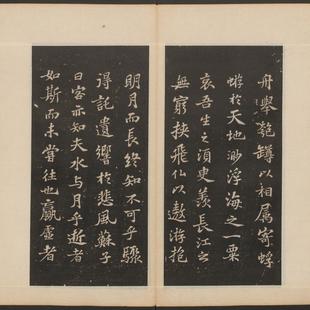 舟舉匏罇以相属寄蜉
蝣於天地渺浮海之一粟
哀吾生之須臾羨長江之
無窮挾飛仙以遨游抱
明月而長終知不可乎驟
得託遺響於悲風蘇子
曰客亦知夫水与月乎逝者
如斯而未嘗往也贏虛者